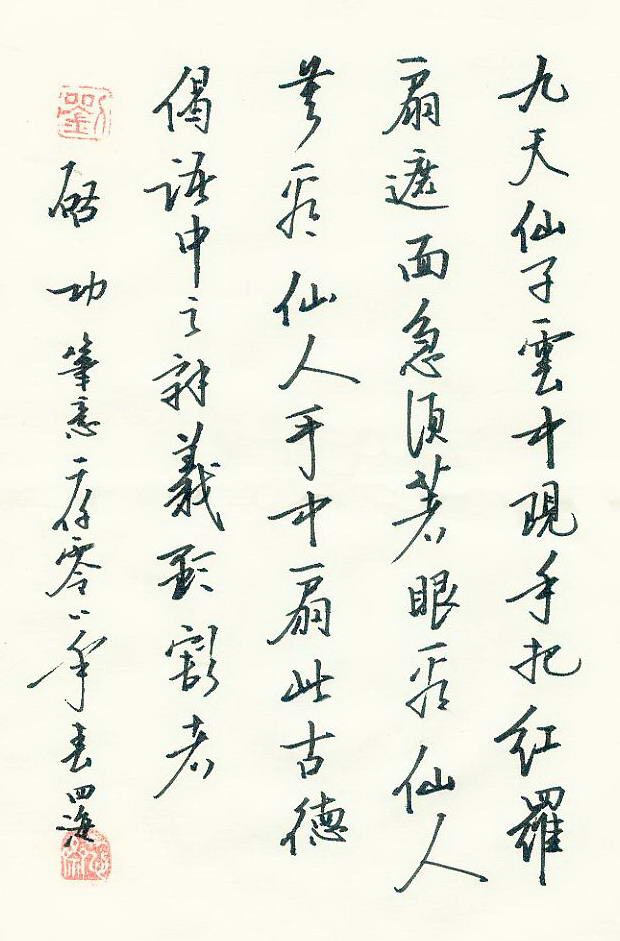 九天仙子雲中現手把紅羅
扇遮面急須著眼看仙人
莫看仙人手中扇此古德
偈語中之辭義豁者
劉
啟功筆意二仟零八年春四海